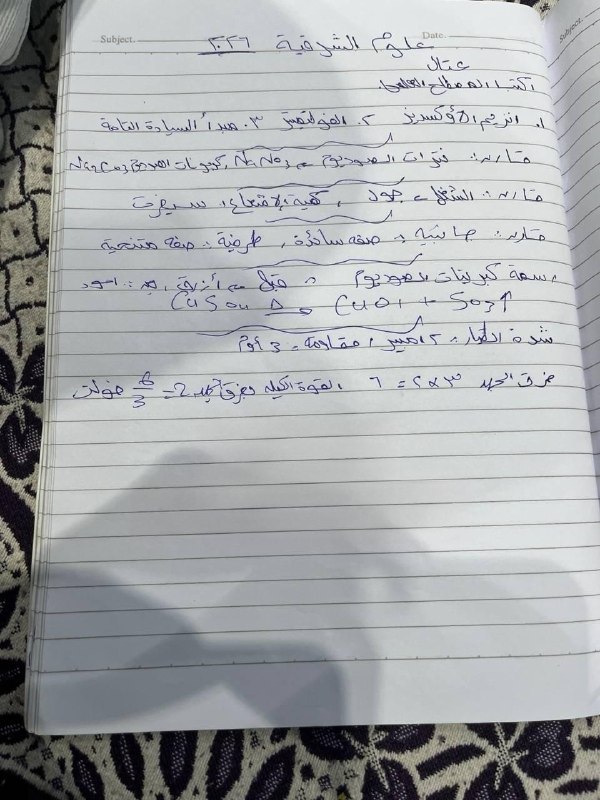 Subject. Date.
علوم الشرقية ٢٠٢٦
عتال
اكتب المصطلح العلمي
١. انزيم الأوكسديز ٢. الفولتميتر ٣. مبدأ السيادة التامة
مقارنه: نترات الصوديوم NaNO3 كربونات الصوديوم Na2CO3
مقارنه: الشغل جول , كمية الاشعاع: سيفرت
مقارنه: جانبيه: صفه سائدة, طرفية: صفه متنحية
كبريتات قبل أزرق, اسود
CuSO4 Δ CuO + SO3↑
شدة التيار: ٢ امبير, مقاومه = 3 أوم
فرق الجهد ٣×٢ = ٦ القوة الكليه 2 = 6/3 فولت